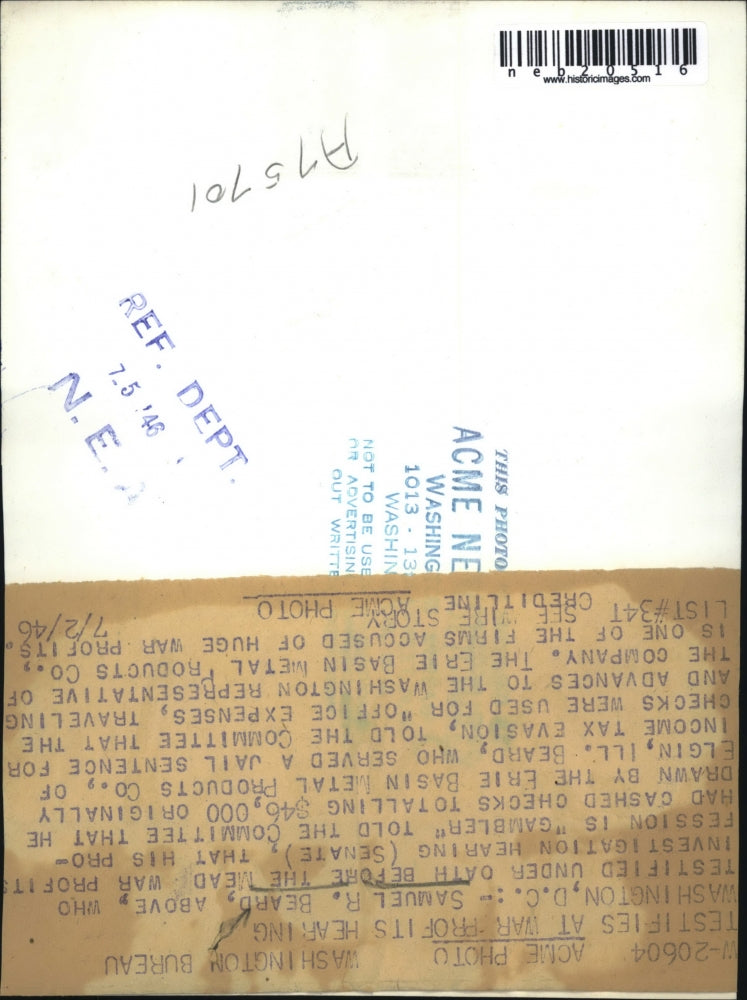 neb20516
www.historicimages.com
A75701
REF. DEPT.
7.5 '46
N. E. A
THIS PHOTO
ACME NE
WASHING
1013 - 13
WASHIN
NOT TO BE USE
OR ADVERTISIN
OUT WRITTE
W-20604 ACME PHOTO WASHINGTON BUREAU
TESTIFIES AT WAR PROFITS HEARING
WASHINGTON,D.C.:- SAMUEL R. BEARD, ABOVE, WHO
TESTIFIED UNDER OATH BEFORE THE MEAD WAR PROFITS
INVESTIGATION HEARING (SENATE), THAT HIS PRO-
FESSION IS "GAMBLER" TOLD THE COMMITTEE THAT HE
HAD CASHED CHECKS TOTALLING $46,000 ORIGINALLY
DRAWN BY THE ERIE BASIN METAL PRODUCTS CO., OF
ELGIN, ILL. BEARD, WHO SERVED A JAIL SENTENCE FOR
INCOME TAX EVASION, TOLD THE COMMITTEE THAT THE
CHECKS WERE USED FOR "OFFICE EXPENSES, TRAVELING
AND ADVANCES TO THE WASHINGTON REPRESENTATIVE OF
THE COMPANY. THE ERIE BASIN METAL PRODUCTS CO.,
IS ONE OF THE FIRMS ACCUSED OF HUGE WAR PROFITS.
LIST#34T SEE WIRE STORY 7/2/46
CREDITLINE ACME PHOTO